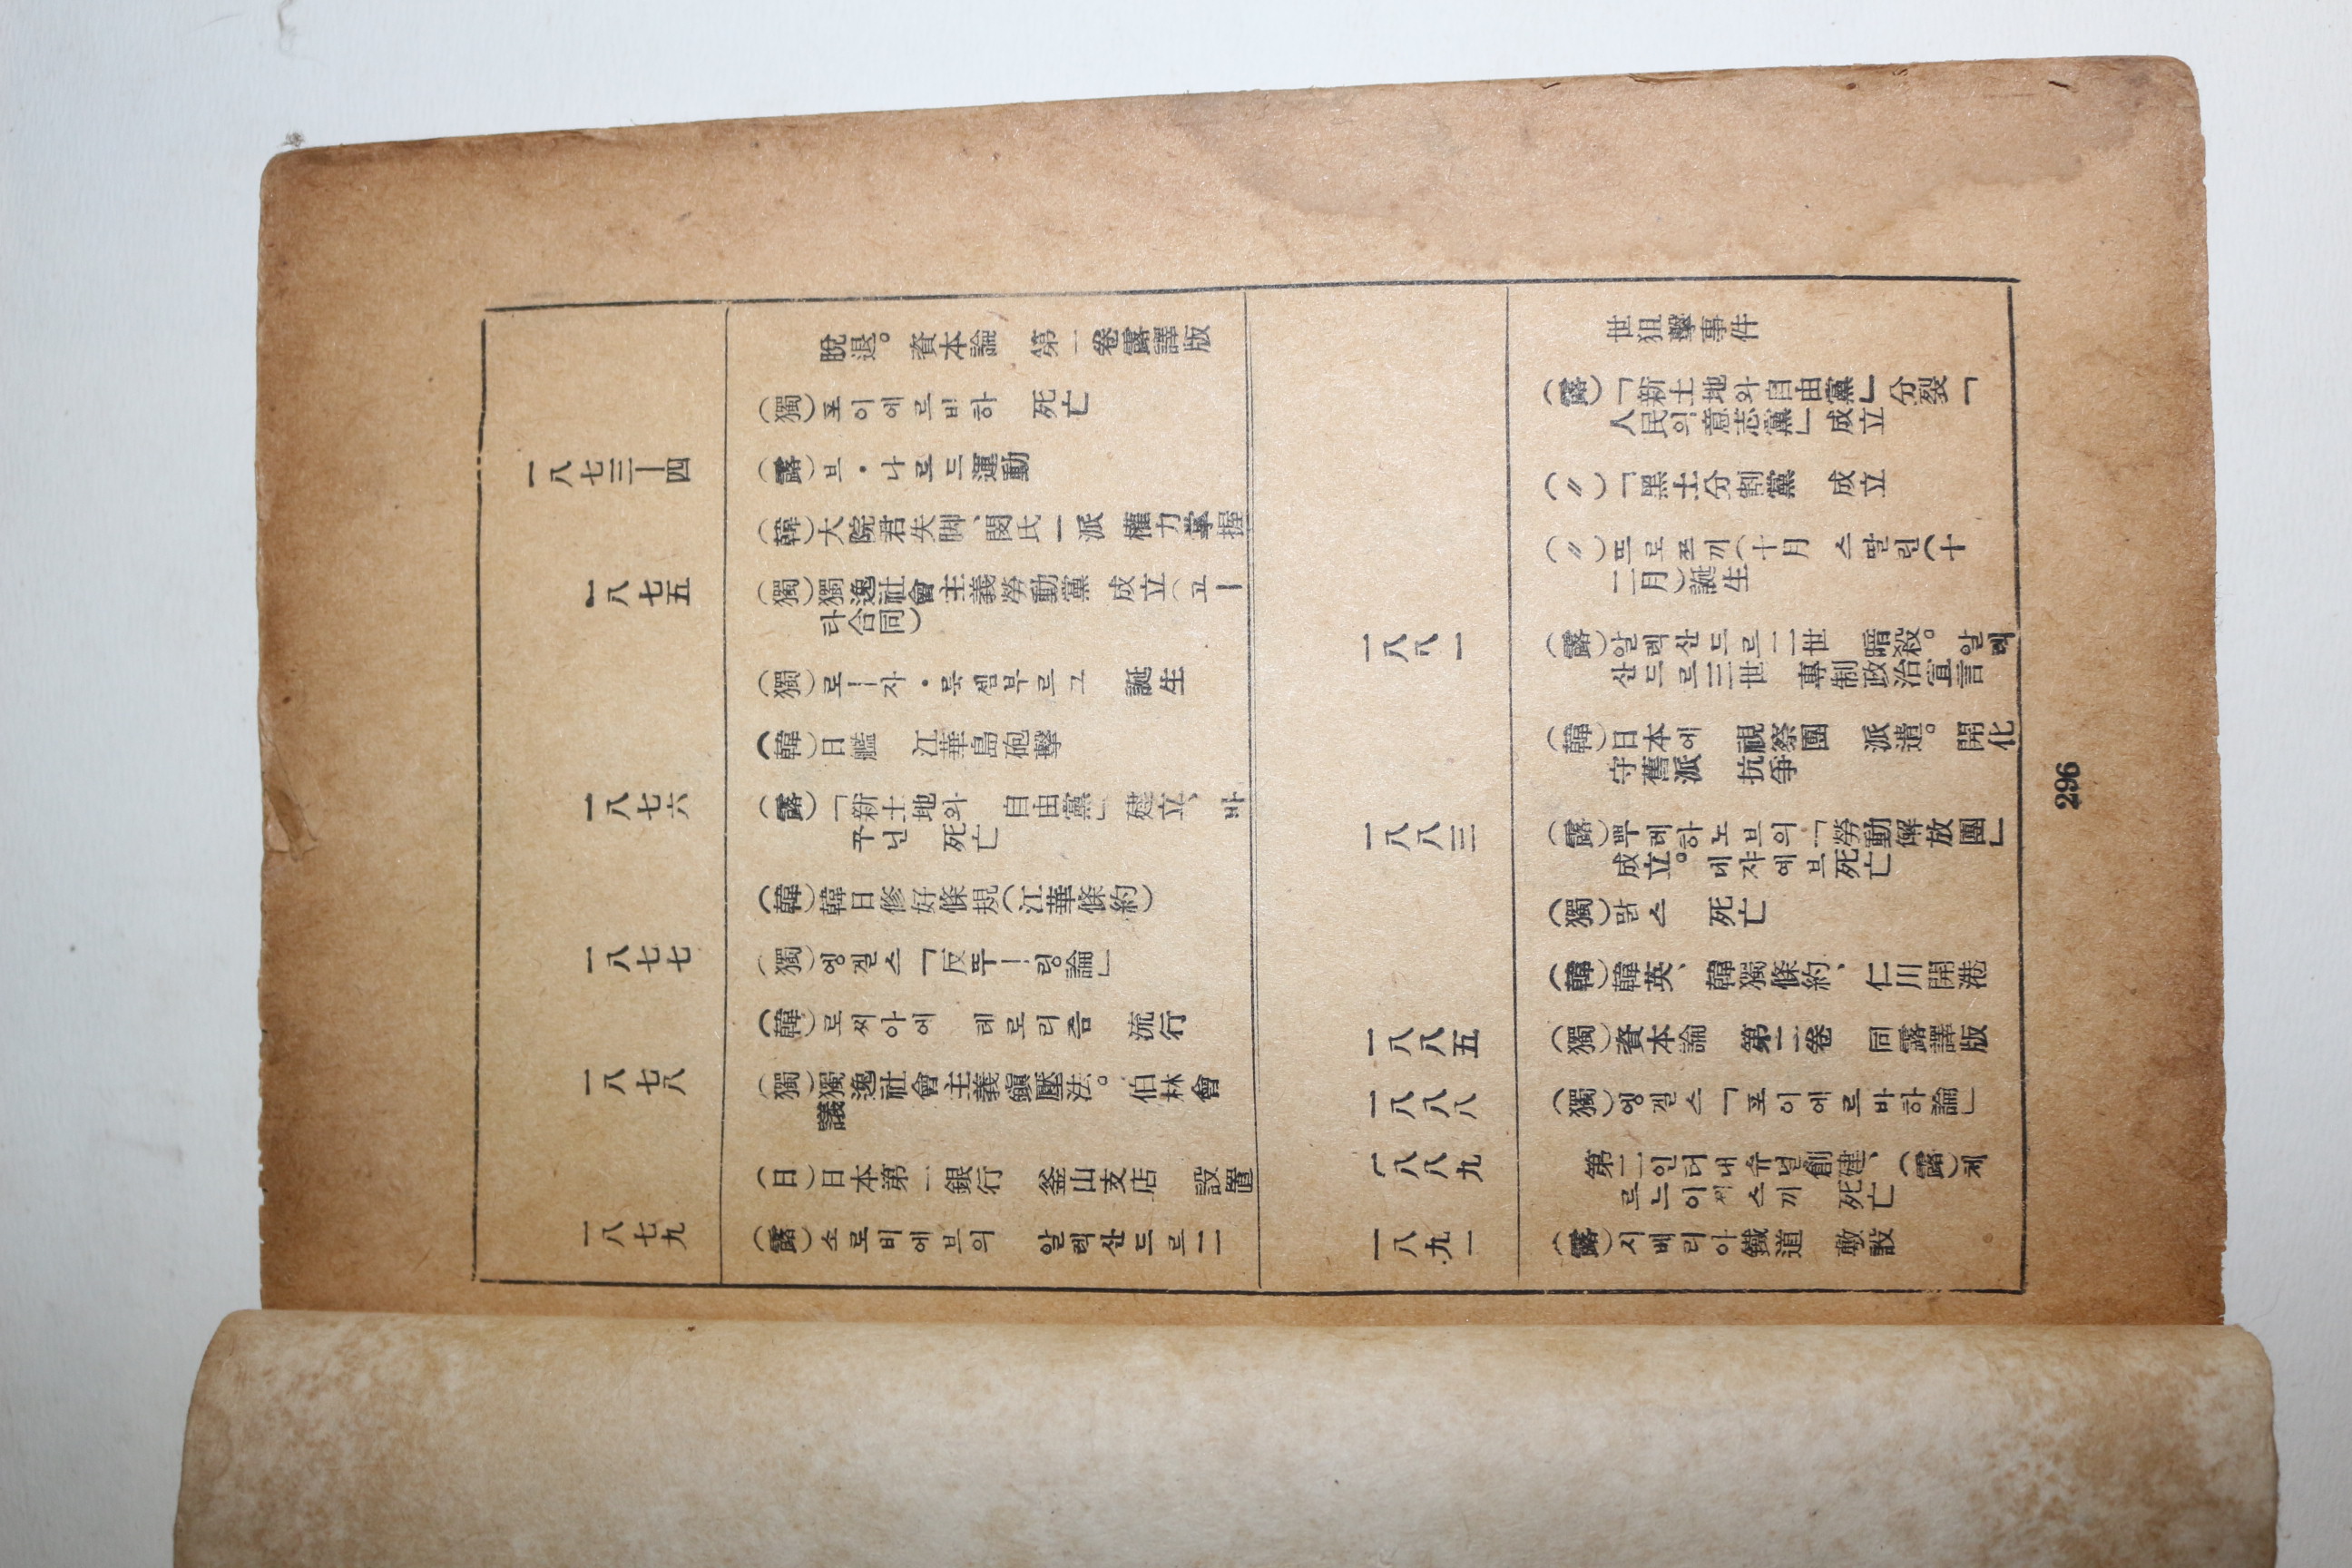 脫退。資本論 第一卷露譯版
(獨)포이에르바하 死亡
一八七三ー四
(露)브・나로드運動
(韓)大院君失脚、閔氏一派 權力掌握
一八七五
(獨)獨逸社會主義勞動黨 成立(고ー
타合同)
(獨)로ー자・룩셈부르그 誕生
(韓)日艦 江華島砲擊
一八七六
(露)「新土地와 自由黨」建立、바
꾸닌 死亡
(韓)韓日修好條規(江華條約)
一八七七
(獨)엥겔스「反뚜ー링論」
(韓)로씨아에 테로리즘 流行
一八七八
(獨)獨逸社會主義鎭壓法。伯林會
議
(日)日本第一銀行 釜山支店 設置
一八七九
(露)소로비에브의 알렉산드르二
世狙擊事件
(露)「新土地와自由黨」分裂「
人民의意志黨」成立
(〃)「黑土分割黨 成立
(〃)뜨로쯔끼(十月 스딸린(十
二月)誕生
一八八一
(露)알렉산드르二世 暗殺。알렉
산드르三世 專制政治宣言
(韓)日本에 視察團 派遣。開化
守舊派 抗爭
一八八三
(露)뿌레하노브의「勞動解放團」
成立。네쟈에브死亡
(獨)맑스 死亡
(韓)韓英、韓獨條約、仁川開港
一八八五
(獨)資本論 第二卷 同露譯版
一八八八
(獨)엥겔스「포이에르바하論」
一八八九
第二인터내슈널創建、(露)체
르느이쩩스끼 死亡
一八九一
(露)시베리아鐵道 敷設
296